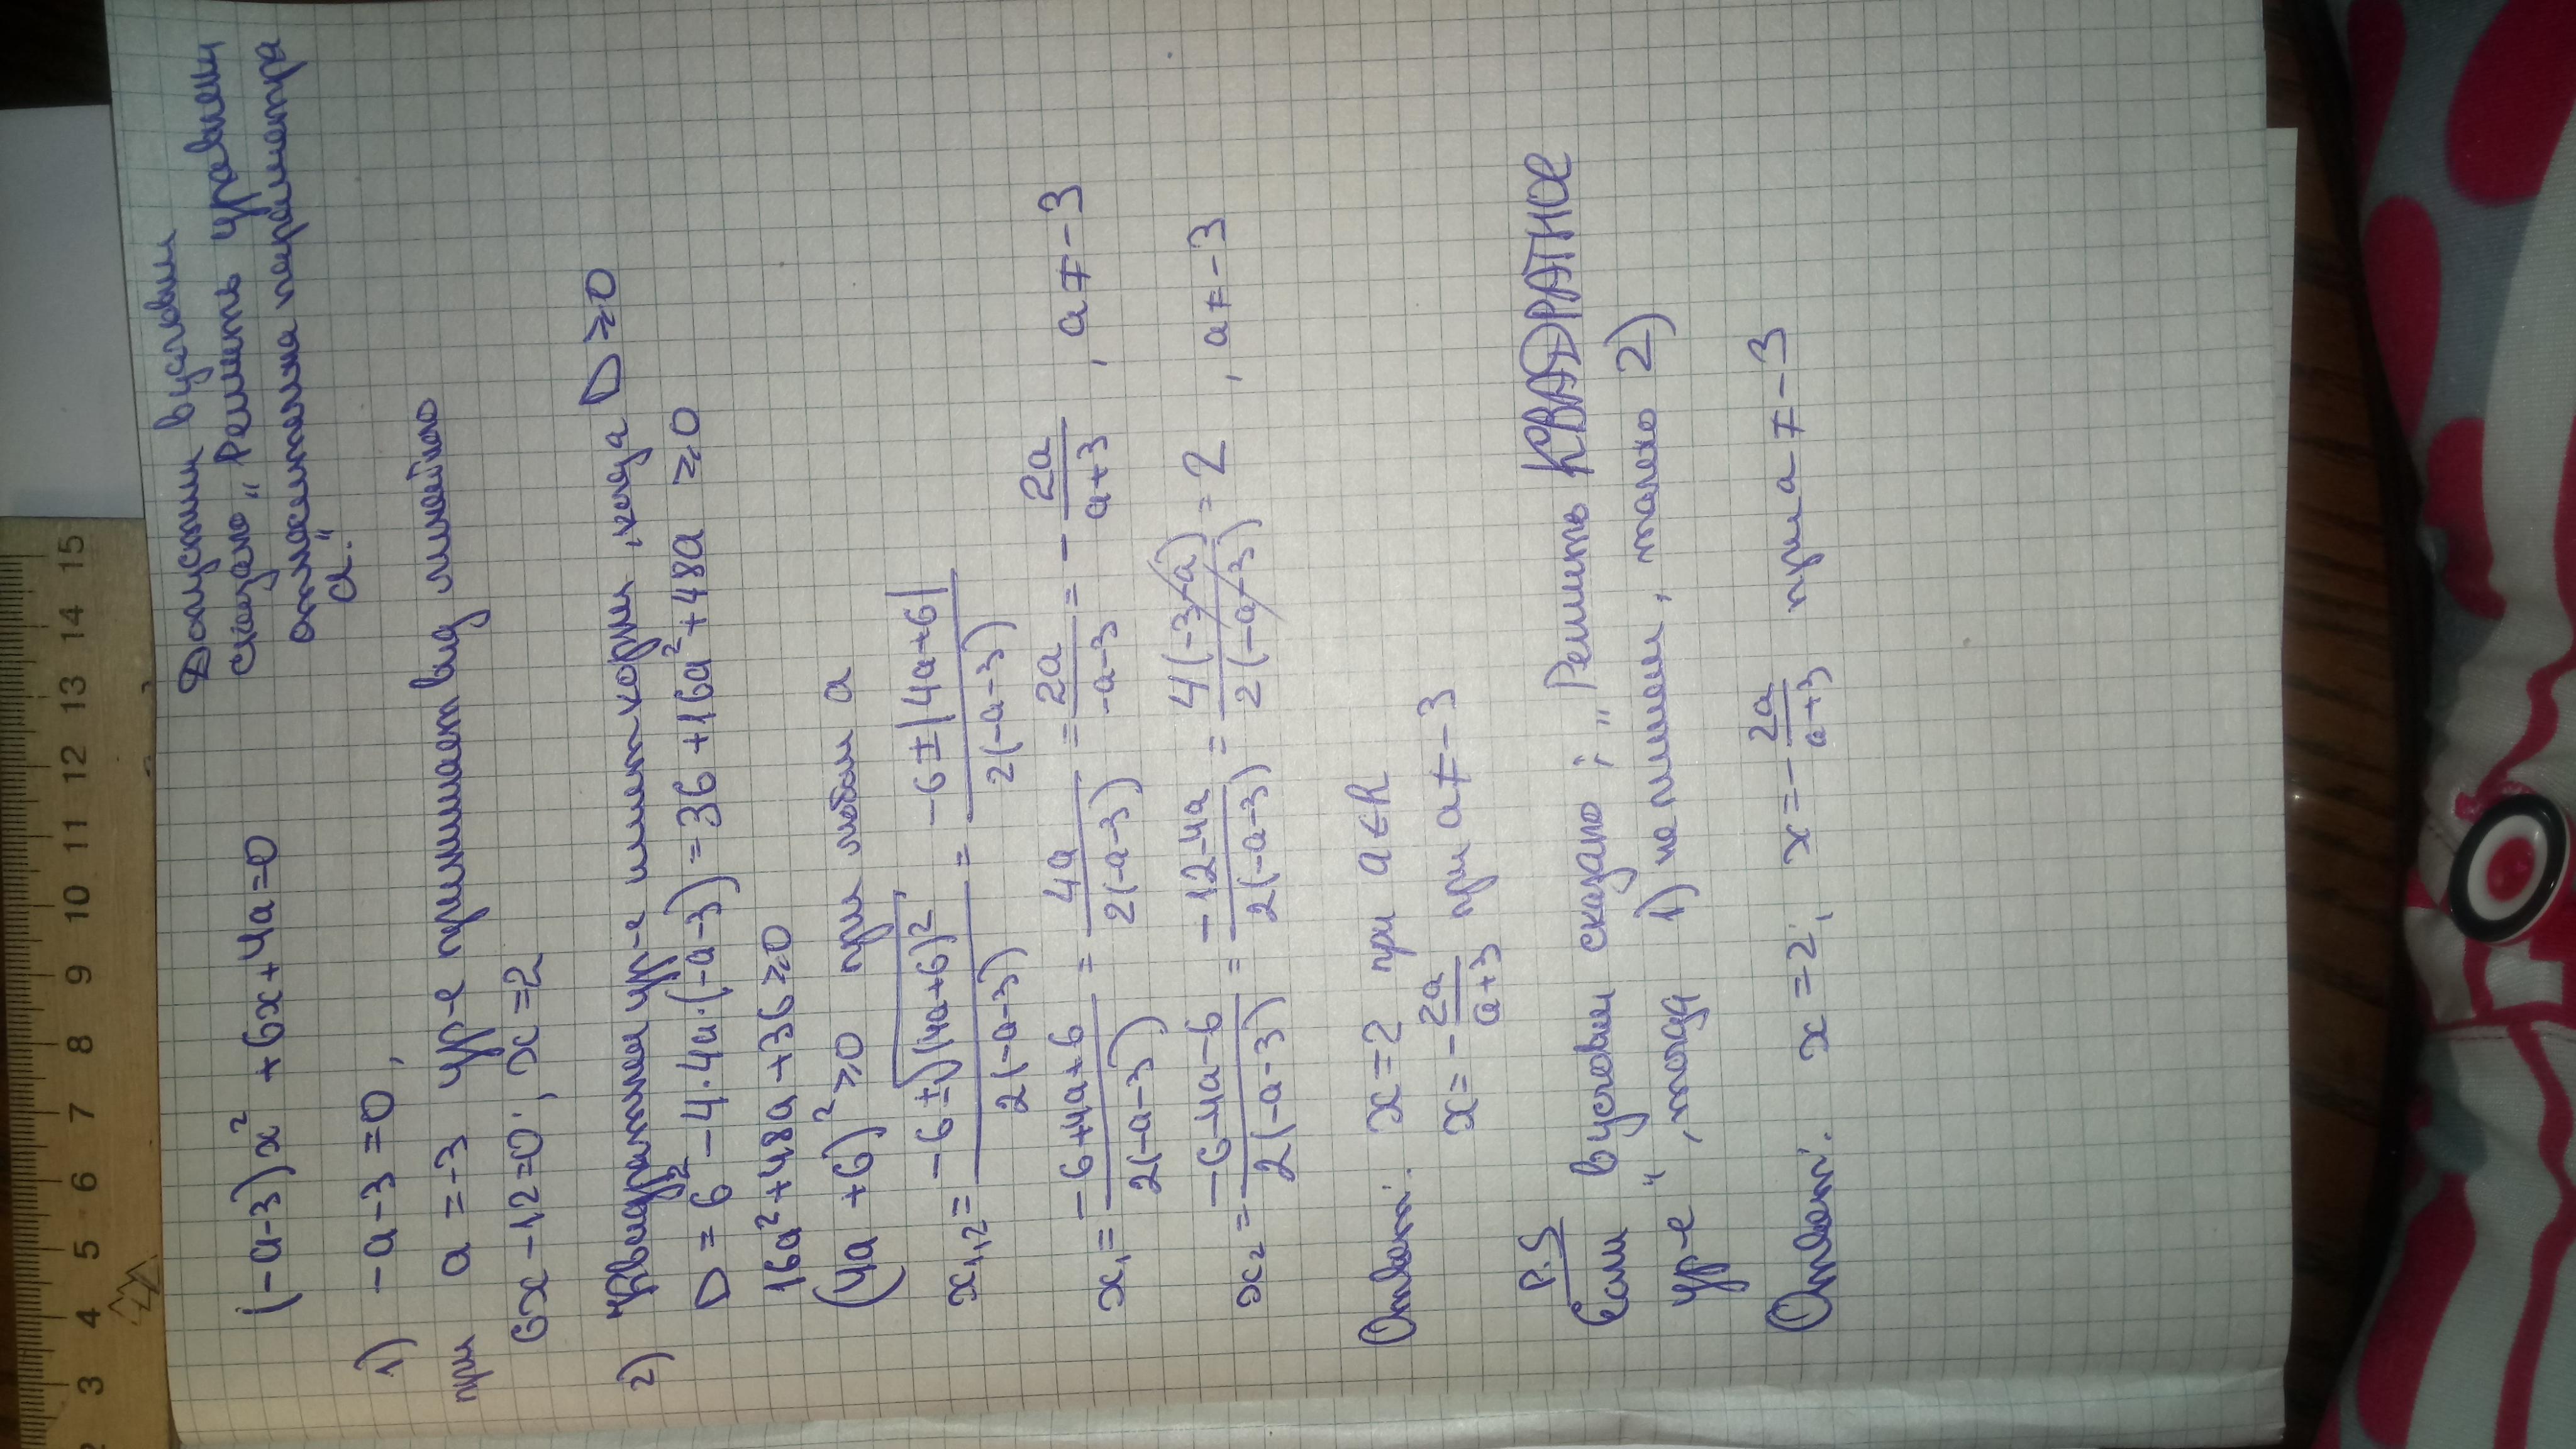 Допустим в условии
сказано „Решить уравнени
относительна параметра
a."
(-a-3)x² + 6x + 4a = 0
1) -a-3=0,
при a = -3 ур-е принимает вид линейного
6x - 12 = 0; x = 2
2) Квадратная ур-е имеет корни, когда D ≥ 0
D = 6² - 4·4a·(-a-3) = 36 + 16a² + 48a ≥ 0
16a² + 48a + 36 ≥ 0
(4a + 6)² ≥ 0 при любом a
x₁,₂ = (-6 ± √(4a+6)²) / 2(-a-3) = (-6 ± |4a+6|) / 2(-a-3)
x₁ = (-6+4a+6) / 2(-a-3) = 4a / 2(-a-3) = 2a / -a-3 = - 2a / a+3, a ≠ -3
x₂ = (-6-4a-6) / 2(-a-3) = (-12-4a) / 2(-a-3) = 4(-3-a) / 2(-a-3) = 2, a ≠ -3
Ответ: x = 2 при a ∈ R
x = - 2a / a+3 при a ≠ -3
P.S
Если в условии сказано: „Решить КВАДРАТНОЕ
ур-е", тогда 1) не пишем, только 2)
Ответ: x = 2; x = - 2a / a+3 при a ≠ -3
3 4 5 6 7 8 9 10 11 12 13 14 15